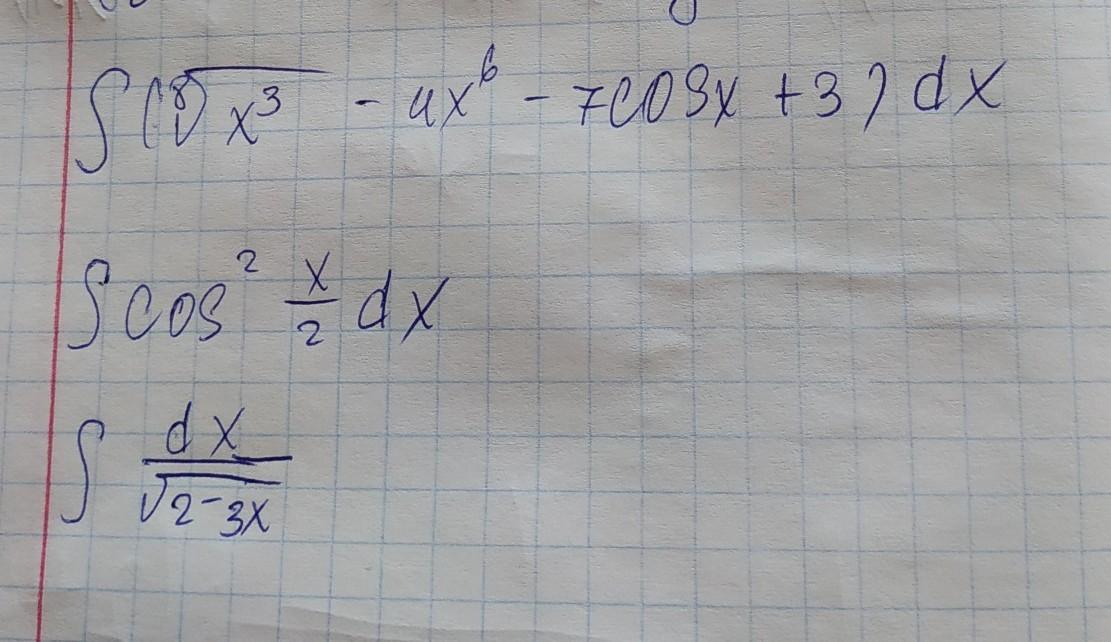 ∫(⁸√x³ - 4x⁶ - 7cosx + 3) dx
∫cos² x/2 dx
∫ dx/√2-3x